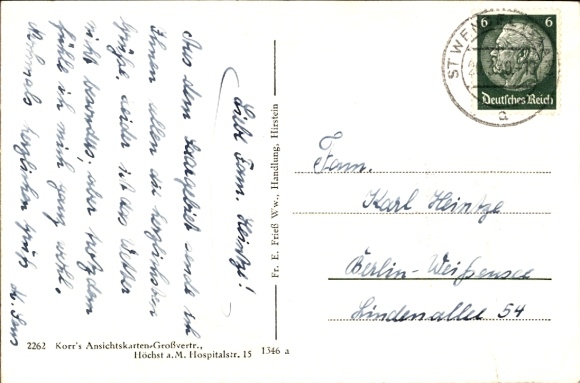 Liebe Fam. Heintze!
Aus dem Saargebiet sende ich
Ihnen allen die herzlichsten
Grüße, leider ist das Wetter
nicht besonders, aber trotzdem
fühle ich mich ganz wohl.
Nochmals herzlichen Gruß
2262 Korr's Ansichtskarten-Großvertr.,
Höchst a.M. Hospitalstr. 15 1346 a
Fr. E. Frieß Ww., Handlung, Hirstein
6 6
Deutsches Reich
ST WENDEL
a
Fam.
Karl Heintze
Berlin-Weißensee
Lindenallee 54